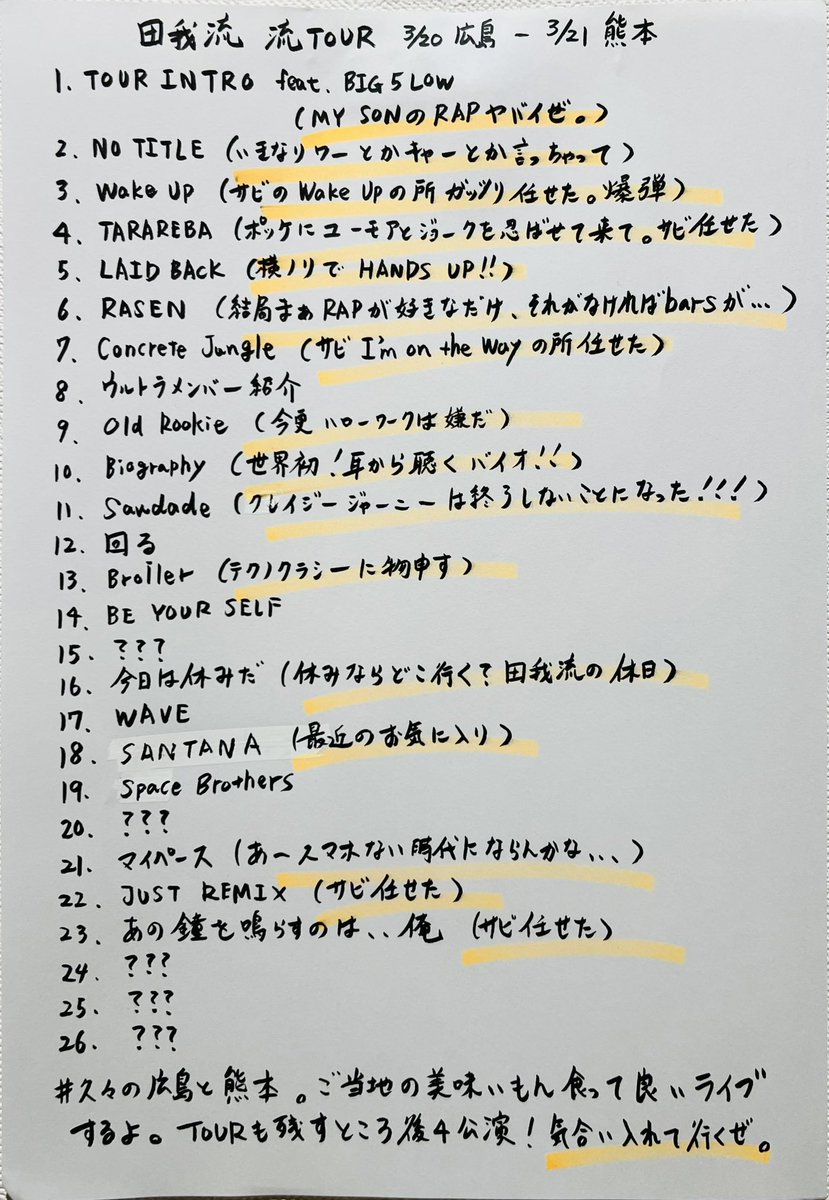 田我流 流TOUR 3/20 広島 - 3/21 熊本
1. TOUR INTRO feat. BIG 5 LOW
(MY SONのRAPヤバイぜ。)
2. NO TITLE (いきなりワーとかキャーとか言っちゃって)
3. Wake Up (サビのWake Upの所ガッツリ任せた。爆弾)
4. TARAREBA (ポッケにユーモアとジョークを忍ばせて来て。サビ任せた)
5. LAID BACK (横ノリで HANDS UP!!)
6. RASEN (結局まぁRAPが好きなだけ、それがなければbarsが...)
7. Concrete Jungle (サビ I'm on the Way の所任せた)
8. ウルトラメンバー紹介
9. Old Rookie (今更ハローワークは嫌だ)
10. Biography (世界初!耳から聴くバイオ!!)
11. Saudade (クレイジージャーニーは終了しないことになった!!!)
12. 回る
13. Broiler (テクノクラシーに物申す)
14. BE YOUR SELF
15. ???
16. 今日は休みだ (休みならどこ行く?田我流の休日)
17. WAVE
18. SANTANA (最近のお気に入り)
19. Space Brothers
20. ???
21. マイペース (あースマホない時代にならんかな、、、)
22. JUST REMIX (サビ任せた)
23. あの鐘を鳴らすのは、、俺 (サビ任せた)
24. ???
25. ???
26. ???
#久々の広島と熊本。ご当地の美味いもん食って良いライブ
するよ。TOURも残すところ後4公演!気合い入れて行くぜ。